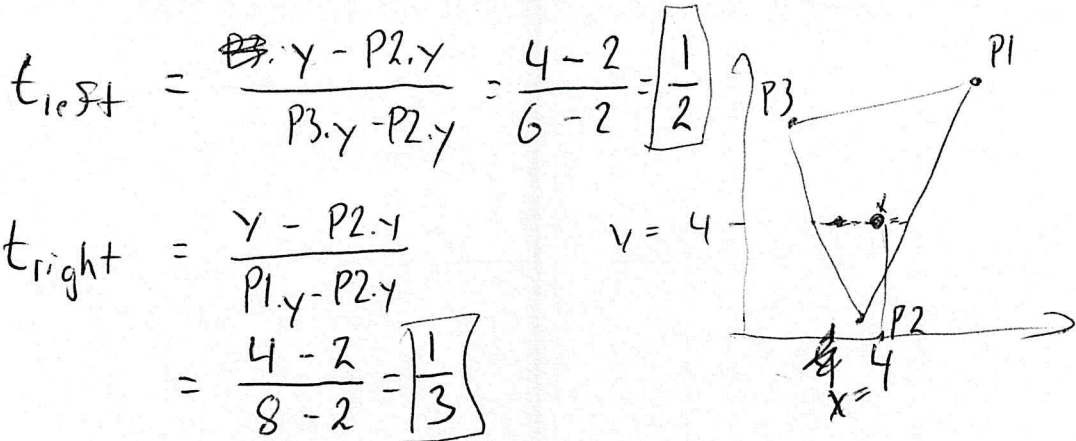 t_left = y - P2.y / P3.y - P2.y = 4 - 2 / 6 - 2 = 1/2
t_right = y - P2.y / P1.y - P2.y
= 4 - 2 / 8 - 2 = 1/3
P1
P3
y = 4
P2
4
x =